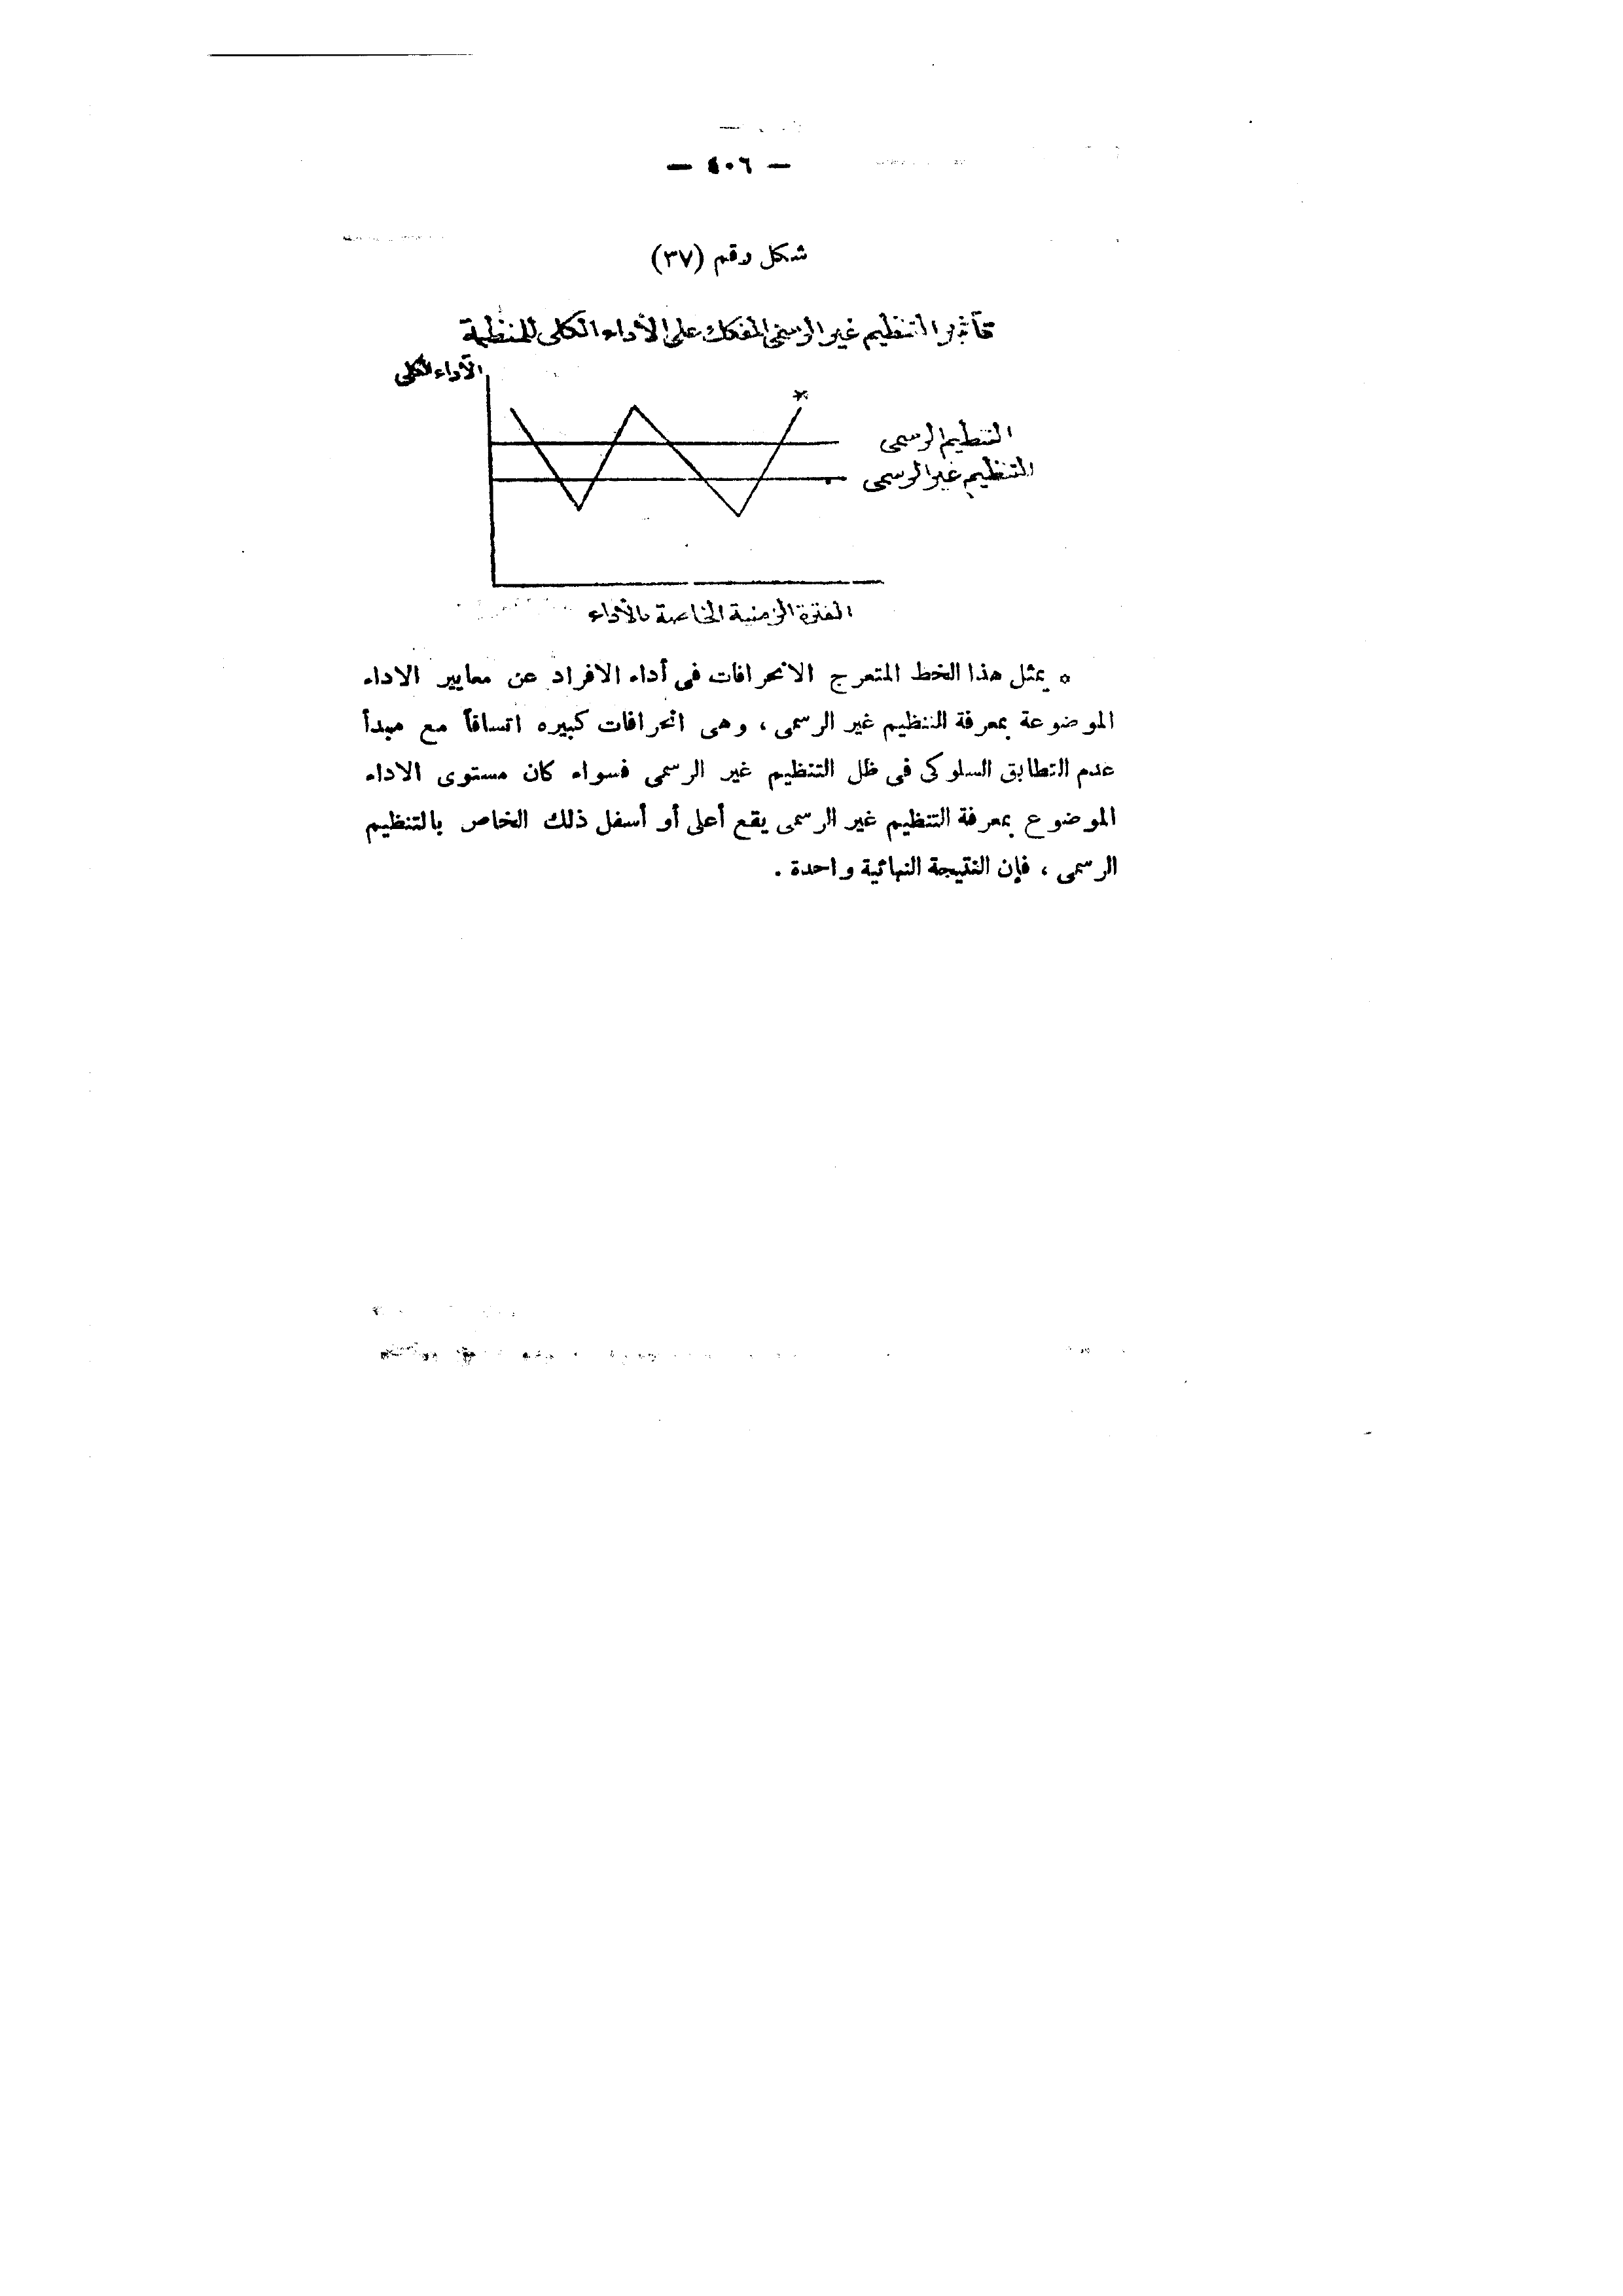 — ٤٠٦ —
شكل رقم (٣٧)
تأثير التنظيم غير الرسمى المفكك على الأداء الكلى للمنظمة
الأداء الكلى
*
التنظيم الرسمى
التنظيم غير الرسمى
الفترة الزمنية الخاصة بالأداء
* يمثل هذا الخط المتعرج الانحرافات فى أداء الافراد عن معايير الاداء
الموضوعة بمعرفة التنظيم غير الرسمى ، وهى انحرافات كبيره اتساقاً مع مبدأ
عدم التطابق السلوكى فى ظل التنظيم غير الرسمى فسواء كان مستوى الاداء
الموضوع بمعرفة التنظيم غير الرسمى يقع أعلى أو أسفل ذلك الخاص بالتنظيم
الرسمى ، فإن النتيجة النهائية واحدة .